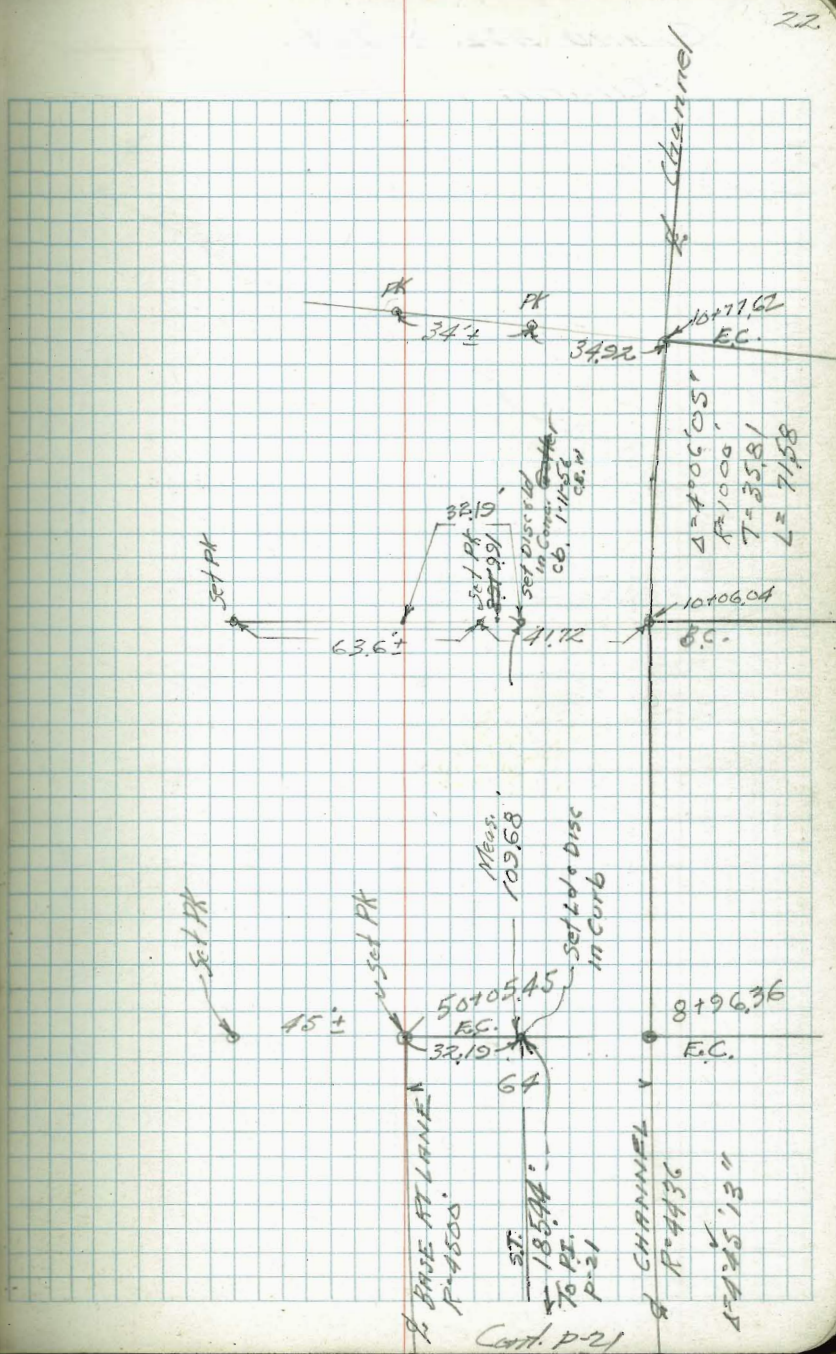 22
℄ Channel
PK
PK
34'±
34.22
10+77.62
E.C.
Δ=4°06'05"
R=1000'
T=35.81
L=71.58
Set PK
32.19'
Set PK
.991
Set Disc & Ld
in Conc.
cb. 1-11-56
63.6'±
41.72
10+06.04
B.C.
Meas.
109.68'
Set Ld & Disc
in Curb
Set PK
Set PK
45'±
50+05.45
E.C.
32.19
64
8+96.36
E.C.
℄ BASE RT LANE
R=4500'
S.T.
185.44'
To P.I.
P-21
℄ CHANNEL
R=4436
Δ=4°45'13"
Cont. P-21